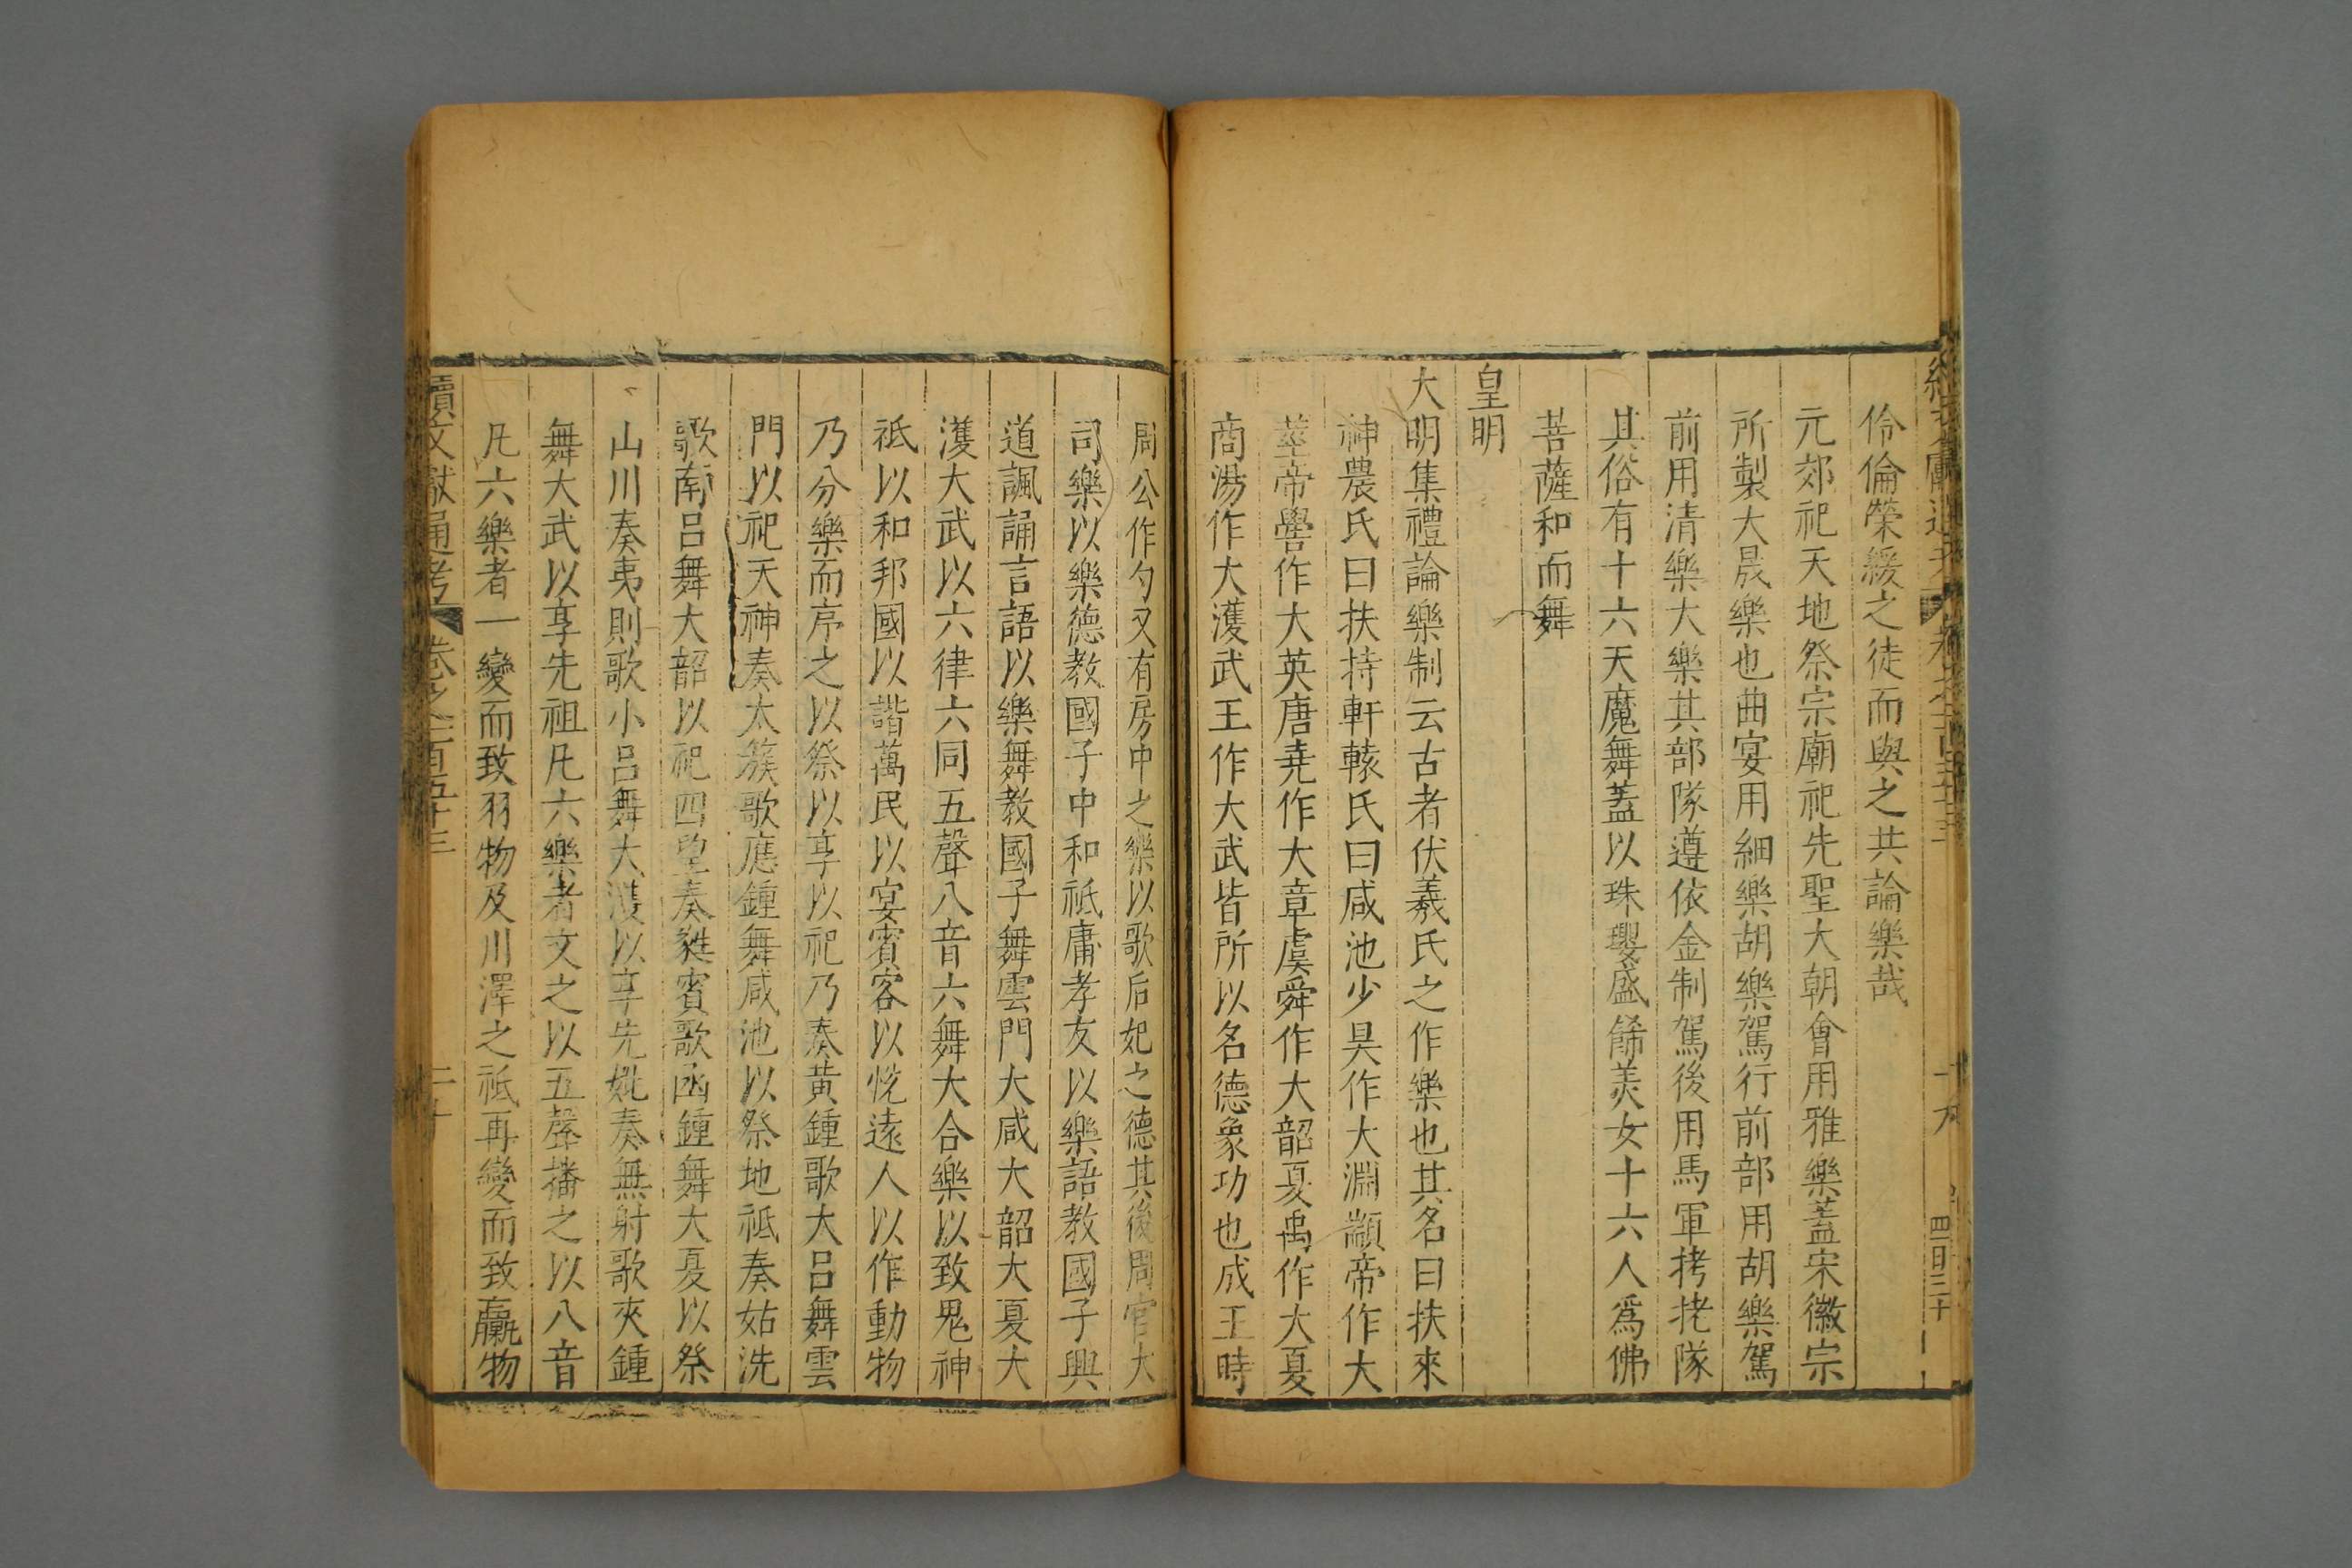 伶倫榮緩之徒而與之共論樂哉
元郊祀天地祭宗廟祀先聖大朝會用雅樂蓋宋徽宗
所製大晟樂也曲宴用細樂胡樂駕行前部用胡樂駕
前用清樂大樂其部隊遵依金制駕後用馬軍拷栳隊
其俗有十六天魔舞蓋以珠瓔盛餙美女十六人爲佛
菩薩和而舞
皇明
大明集禮論樂制云古者伏羲氏之作樂也其名曰扶來
神農氏曰扶持軒轅氏曰咸池少昊作大淵顓帝作大
莖帝嚳作大英唐尭作大章虞舜作大韶夏禹作大夏
商湯作大濩武王作大武皆所以名德象功也成王時
周公作勺又有房中之樂以歌后妃之德其後周官大
司樂以樂德教國子中和祗庸孝友以樂語教國子興
道諷誦言語以樂舞教國子舞雲門大咸大韶大夏大
濩大武以六律六同五聲八音六舞大合樂以致鬼神
祗以和邦國以諧萬民以宴賓客以恱遠人以作動物
乃分樂而序之以祭以享以祀乃奏黃鍾歌大呂舞雲
門以祀天神奏太簇歌應鍾舞咸池以祭地祗奏姑洗
歌南呂舞大韶以祀四望奏蕤賓歌函鍾舞大夏以祭
山川奏夷則歌小呂舞大濩以享先妣奏無射歌夾鍾
舞大武以享先祖凡六樂者文之以五聲播之以八音
凡六樂者一變而致羽物及川澤之祗再變而致臝物
續文獻通考 卷之一百五十三 二十